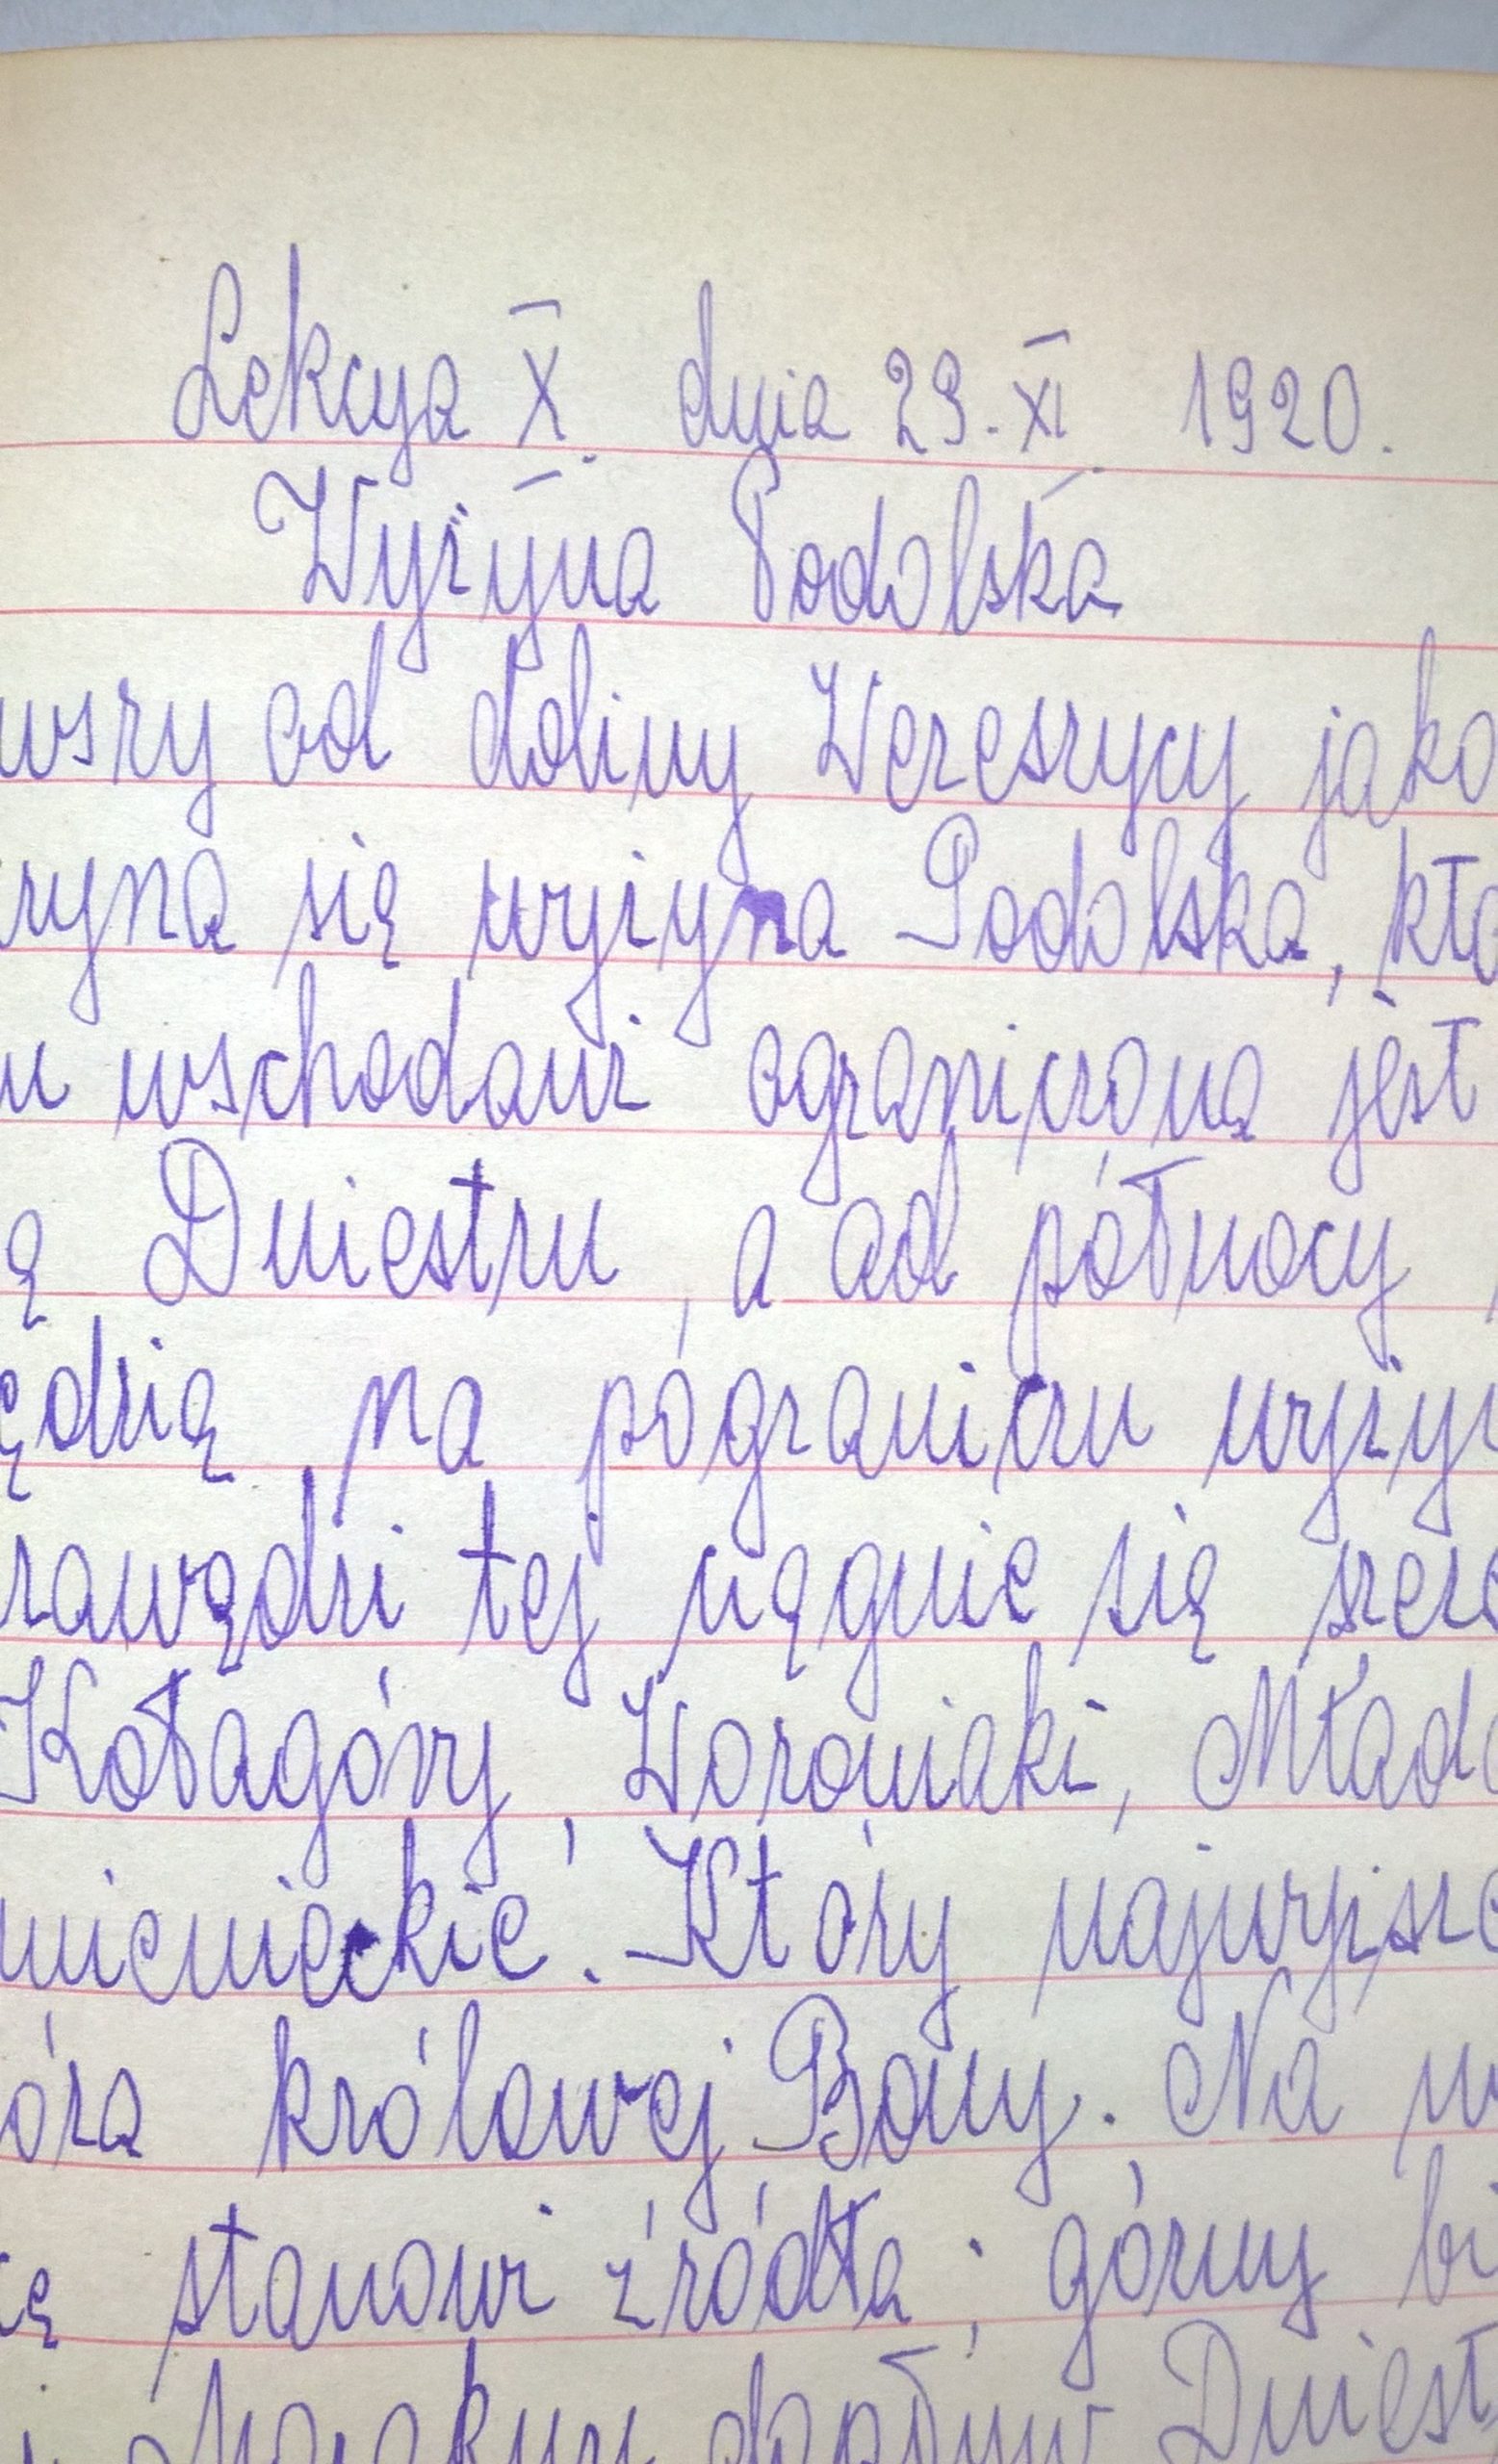 Lekcya X. dnia 29. XI. 1920.
Wyżyna Podolska
wszy od doliny Wereszycy jako
zyna się wyżyna Podolska, któ
u wschodowi ograniczona jest
ą Dniestru, a od północy
ędzią na pograniczu wyży
rawędzi tej ciągnie się szere
Kołtagóry, Woroniaki,
mienieckie. Który najwyższe
óra królowej Bony. Na w
cę stanowi źródła; górny bi
dopływ Dniest